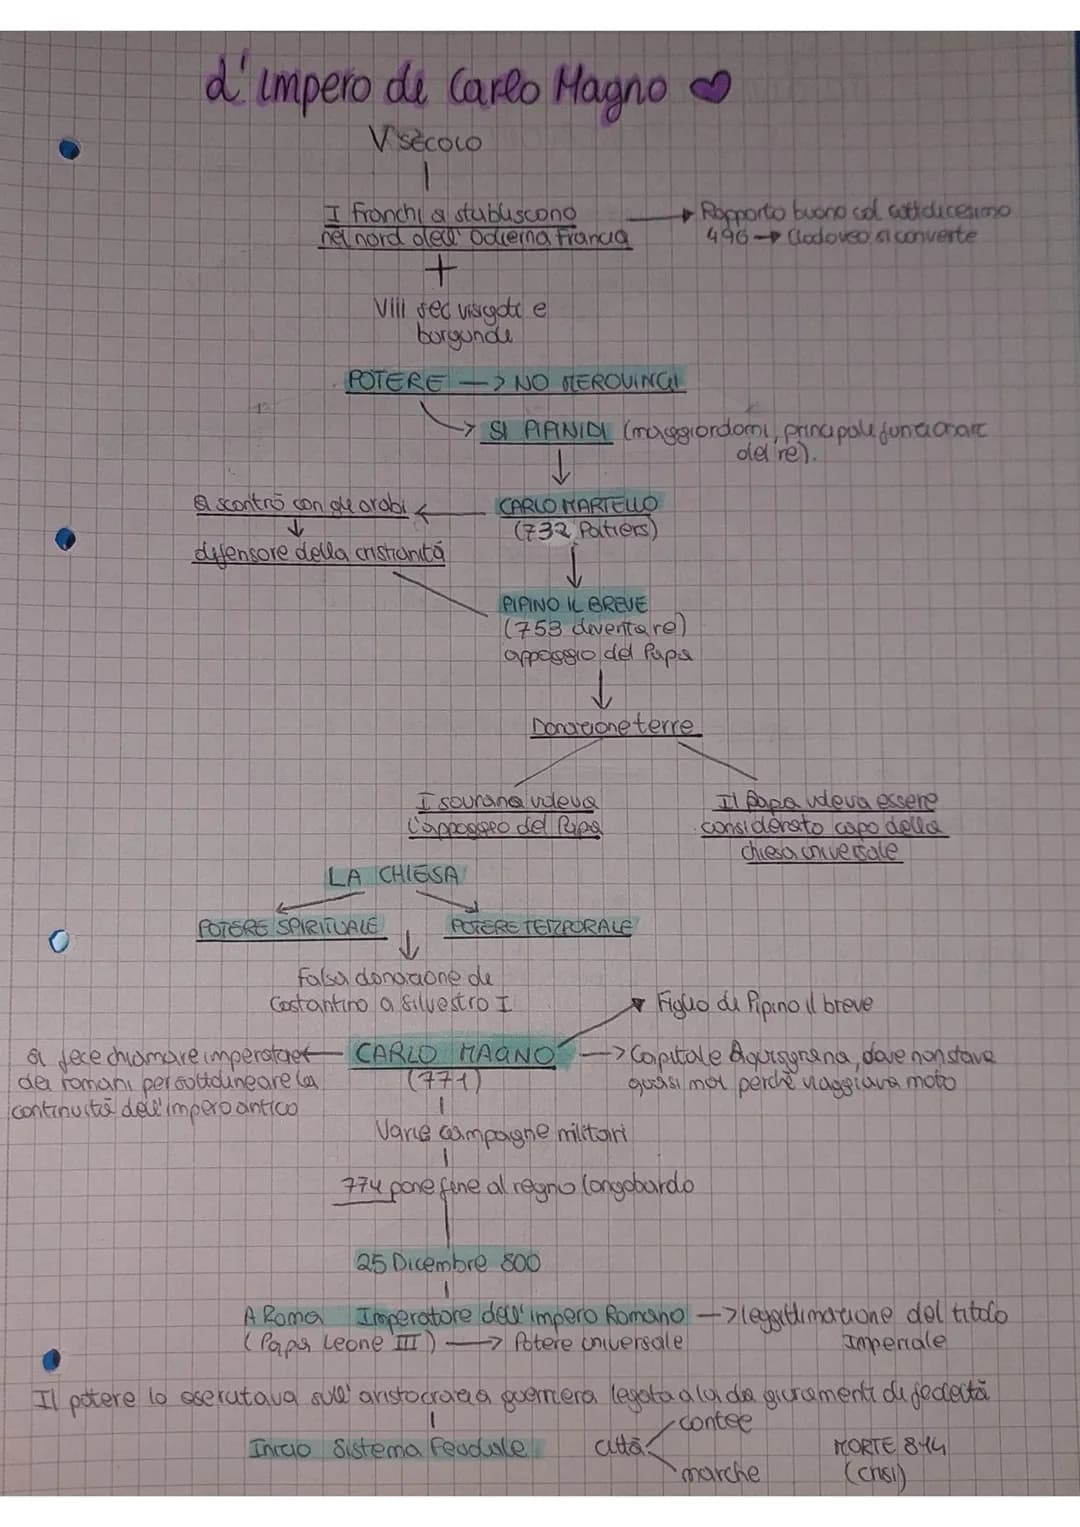 L'impero di Carlo Magno
V secolo
I Franchi si stabiliscono
nel nord dell'odierna Francia
Rapporto buono col cattolicesimo
496 → Clodoveo si converte
+
VIII sec visigoti e
burgundi
POTERE → NO MEROVINGI
SI PIPINIDI (maggiordomi, principali funzionari
del re).
CARLO MARTELLO
(732 Poitiers)
si scontrò con gli arabi
difensore della cristianità
PIPINO IL BREVE
(753 diventa re)
appoggio del Papa
Donazione terre
I sovrani voleva
l'appoggio del Papa
Il Papa voleva essere
considerato capo della
chiesa universale
LA CHIESA
POTERE SPIRITUALE
POTERE TEMPORALE
Falsa donazione di
Costantino a Silvestro I
Figlio di Pipino il breve
CARLO MAGNO
(771)
si fece chiamare imperatore
dei romani per sottolineare la
continuità dell'impero antico
→ Capitale Aquisgrana, dove non stava
quasi mai perchè viaggiava molto
Varie campagne militari
774 pone fine al regno longobardo
25 Dicembre 800
A Roma Imperatore dell'impero Romano → legittimazione del titolo
Imperiale
(Papa Leone III) → Potere universale
Il potere lo esercitava sull'aristocrazia guerriera legata a lui da giuramenti di fedeltà
Inizio Sistema Feudale
città
contee
marche
MORTE 814
(crisi)